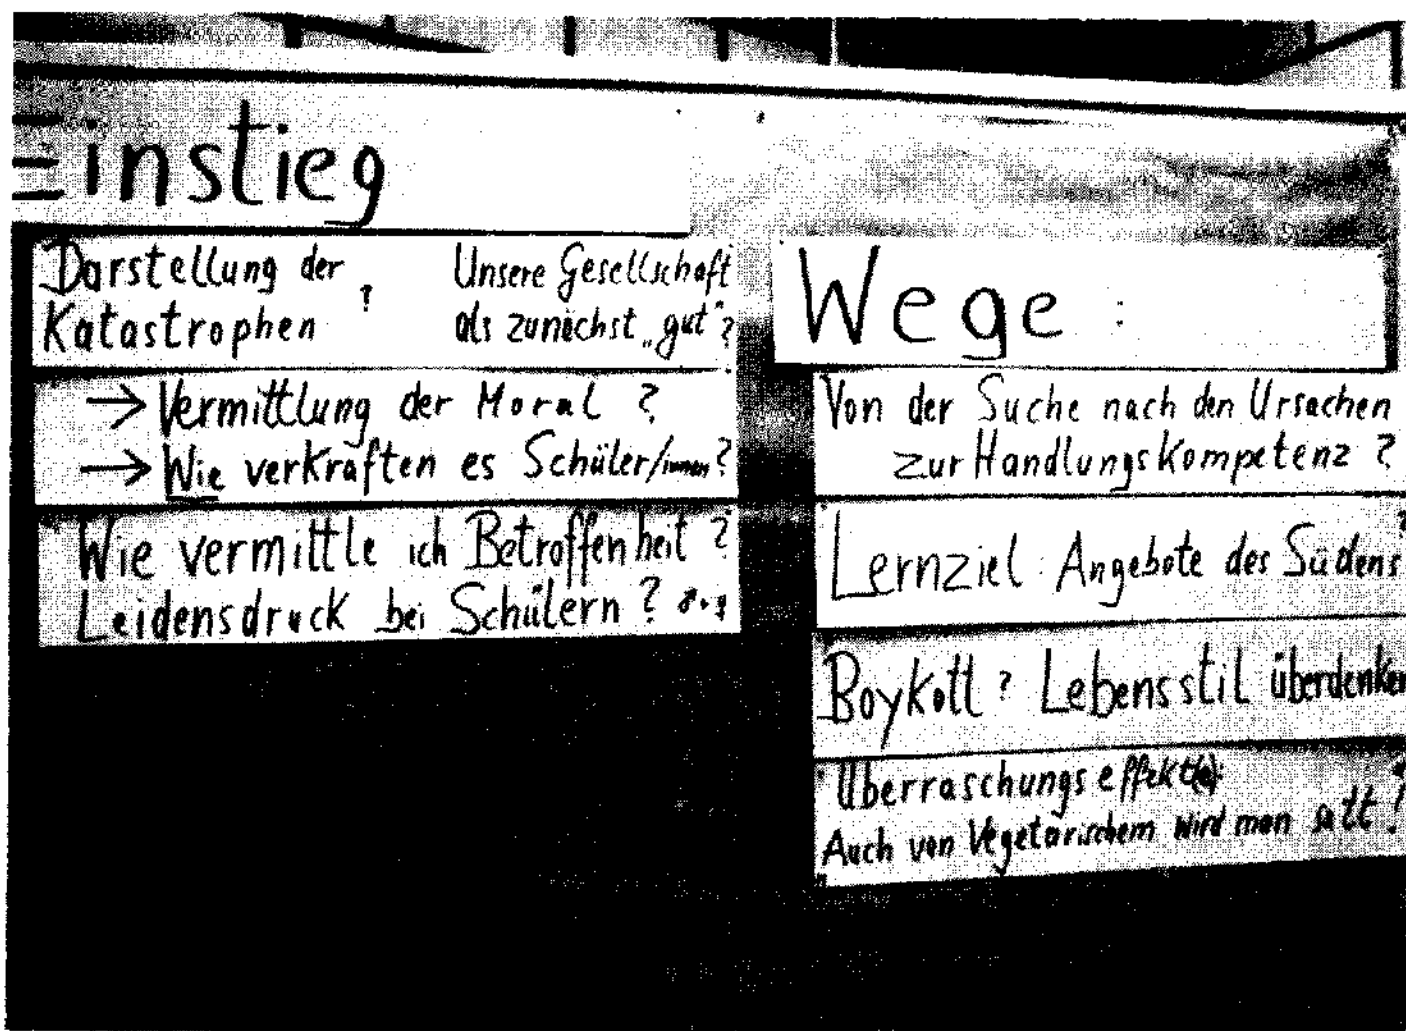 Einstieg
Darstellung der
Katastrophen ?
Unsere Gesellschaft
als zunächst „gut"?
→ Vermittlung der Moral ?
→ Wie verkraften es Schüler/innen?
Wie vermittle ich Betroffenheit ?
Leidensdruck bei Schülern ?
Wege :
Von der Suche nach den Ursachen
zur Handlungskompetenz ?
Lernziel : Angebote des Südens ?
Boykott ? Lebensstil überdenken
Überraschungseffekt(e):
Auch von Vegetarischem wird man satt !